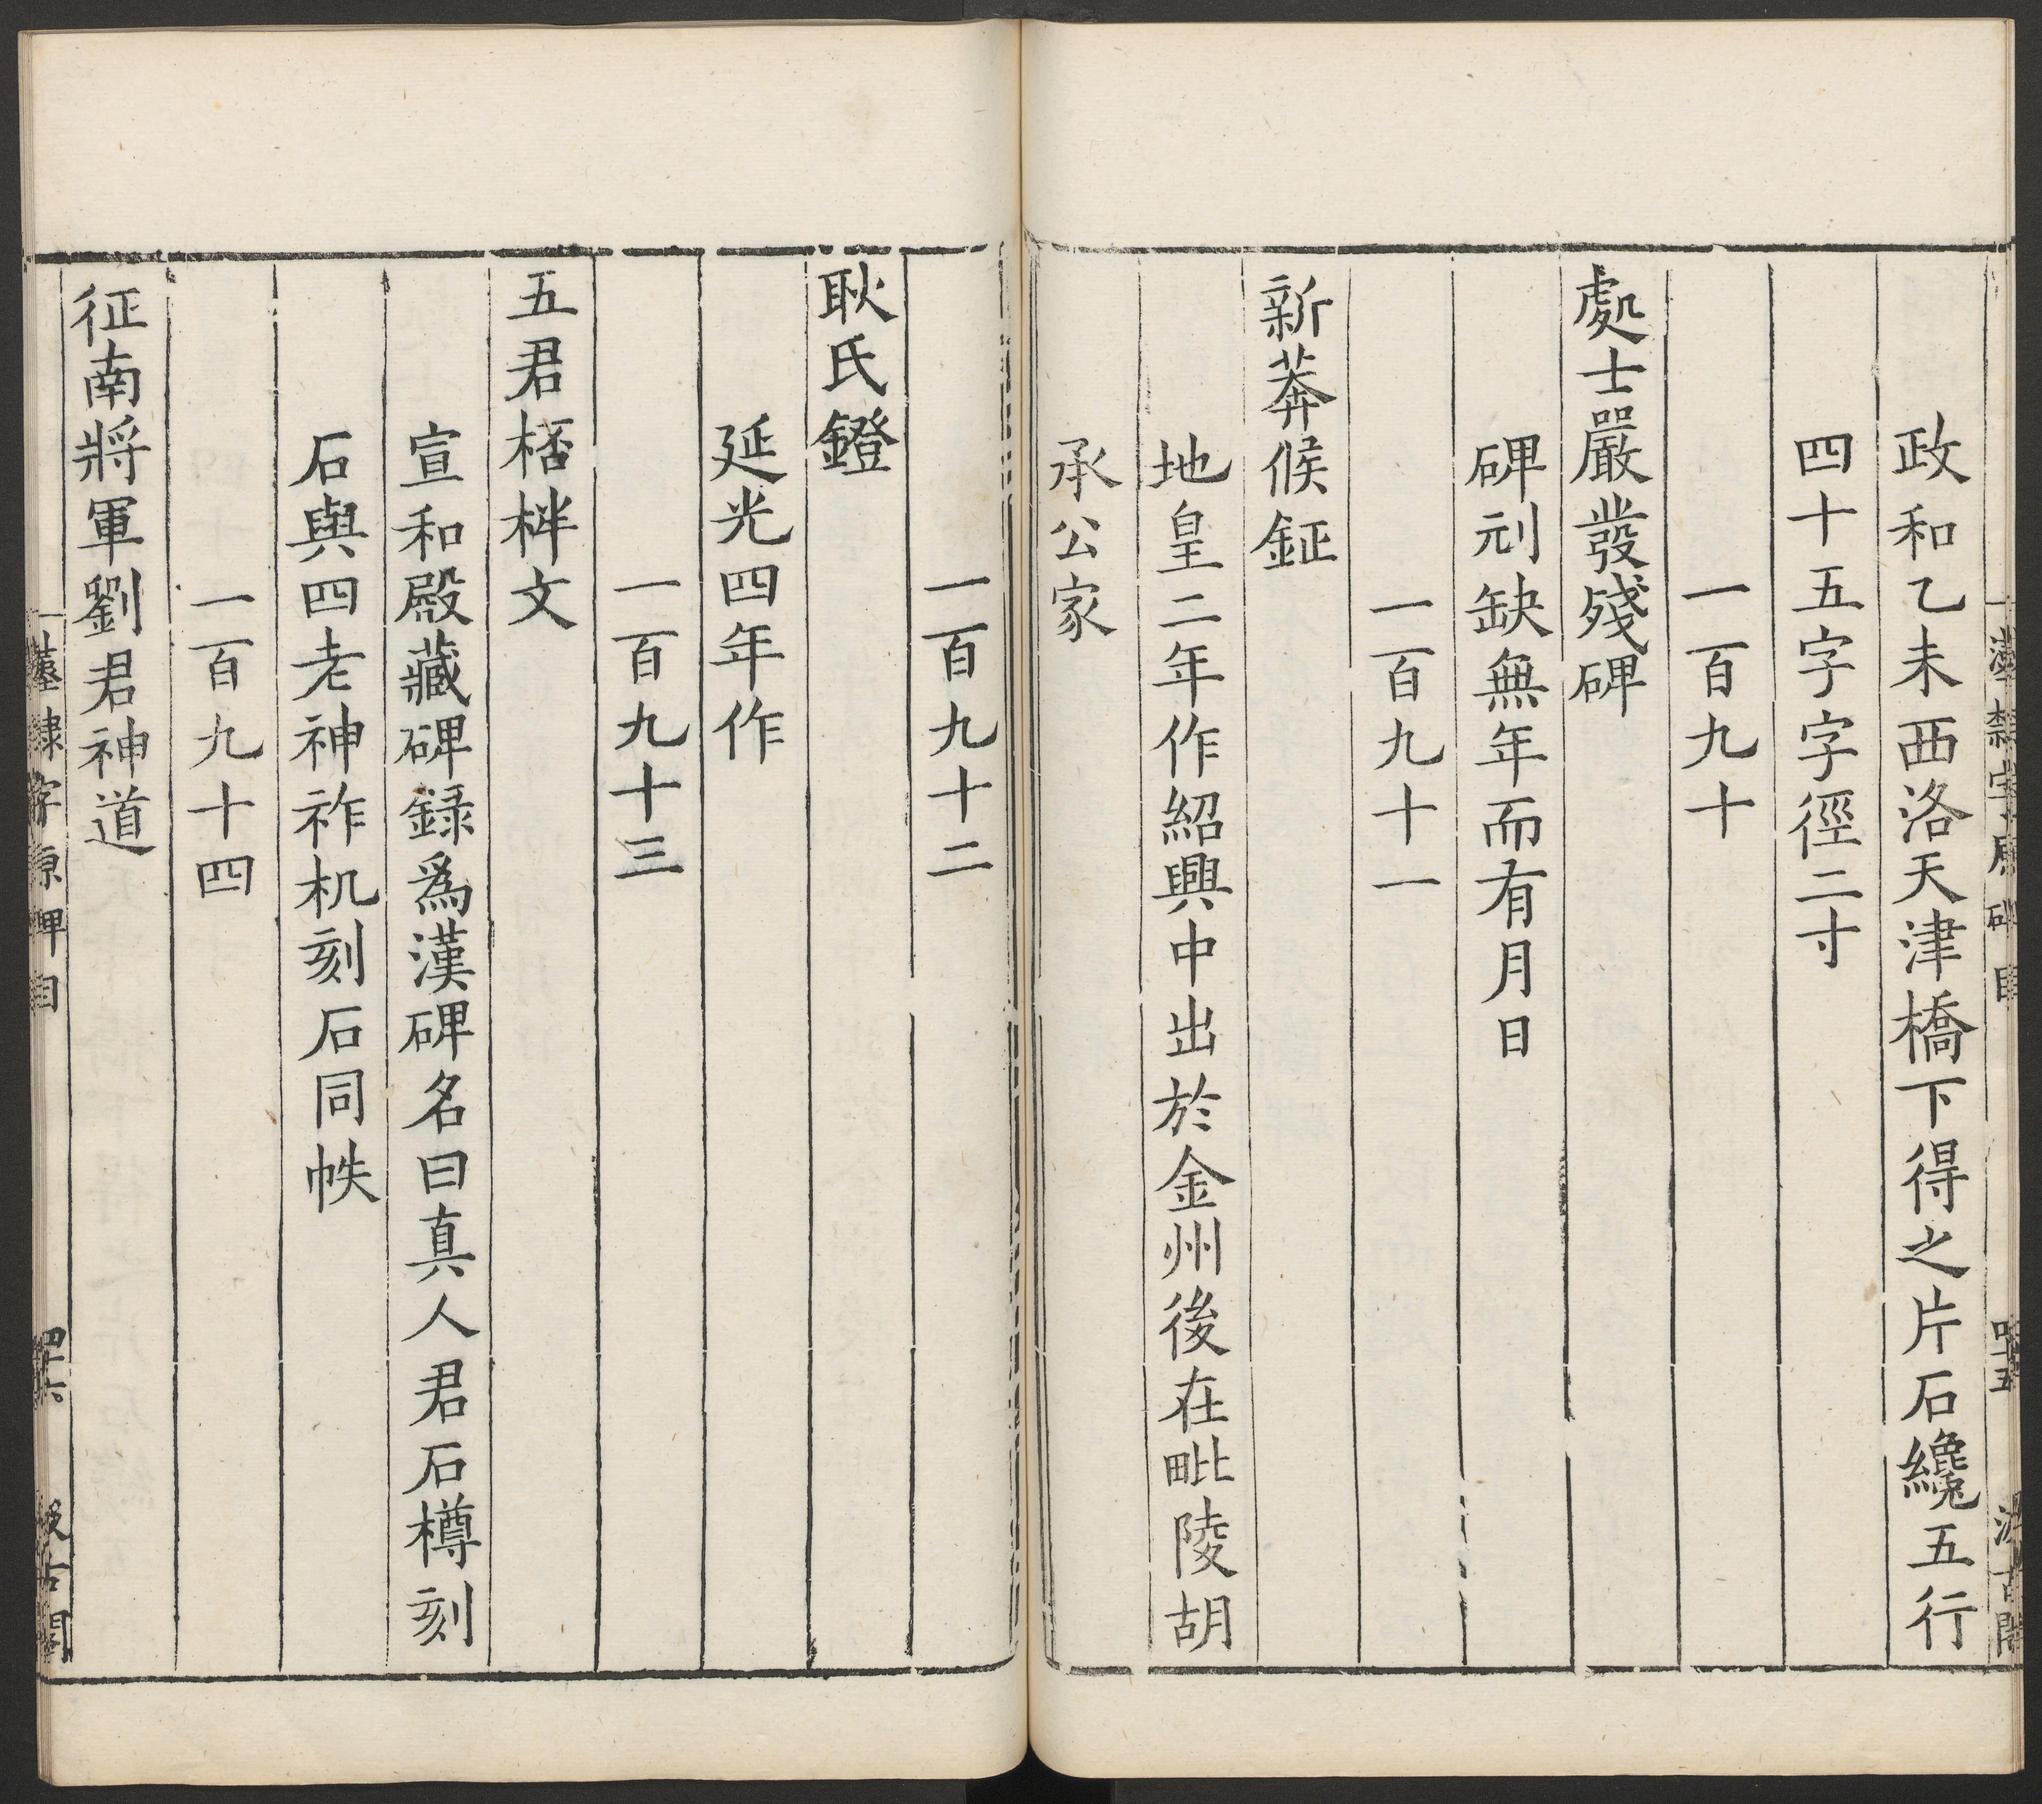 政和乙未西洛天津橋下得之片石纔五行
四十五字字徑二寸
一百九十
處士嚴發殘碑
碑刓缺無年而有月日
一百九十一
新莽候鉦
地皇二年作紹興中出於金州後在毗陵胡
承公家
一百九十二
耿氏鐙
延光四年作
一百九十三
五君桮柈文
宣和殿藏碑録爲漢碑名曰真人君石樽刻
石與四老神祚机刻石同帙
一百九十四
征南將軍劉君神道